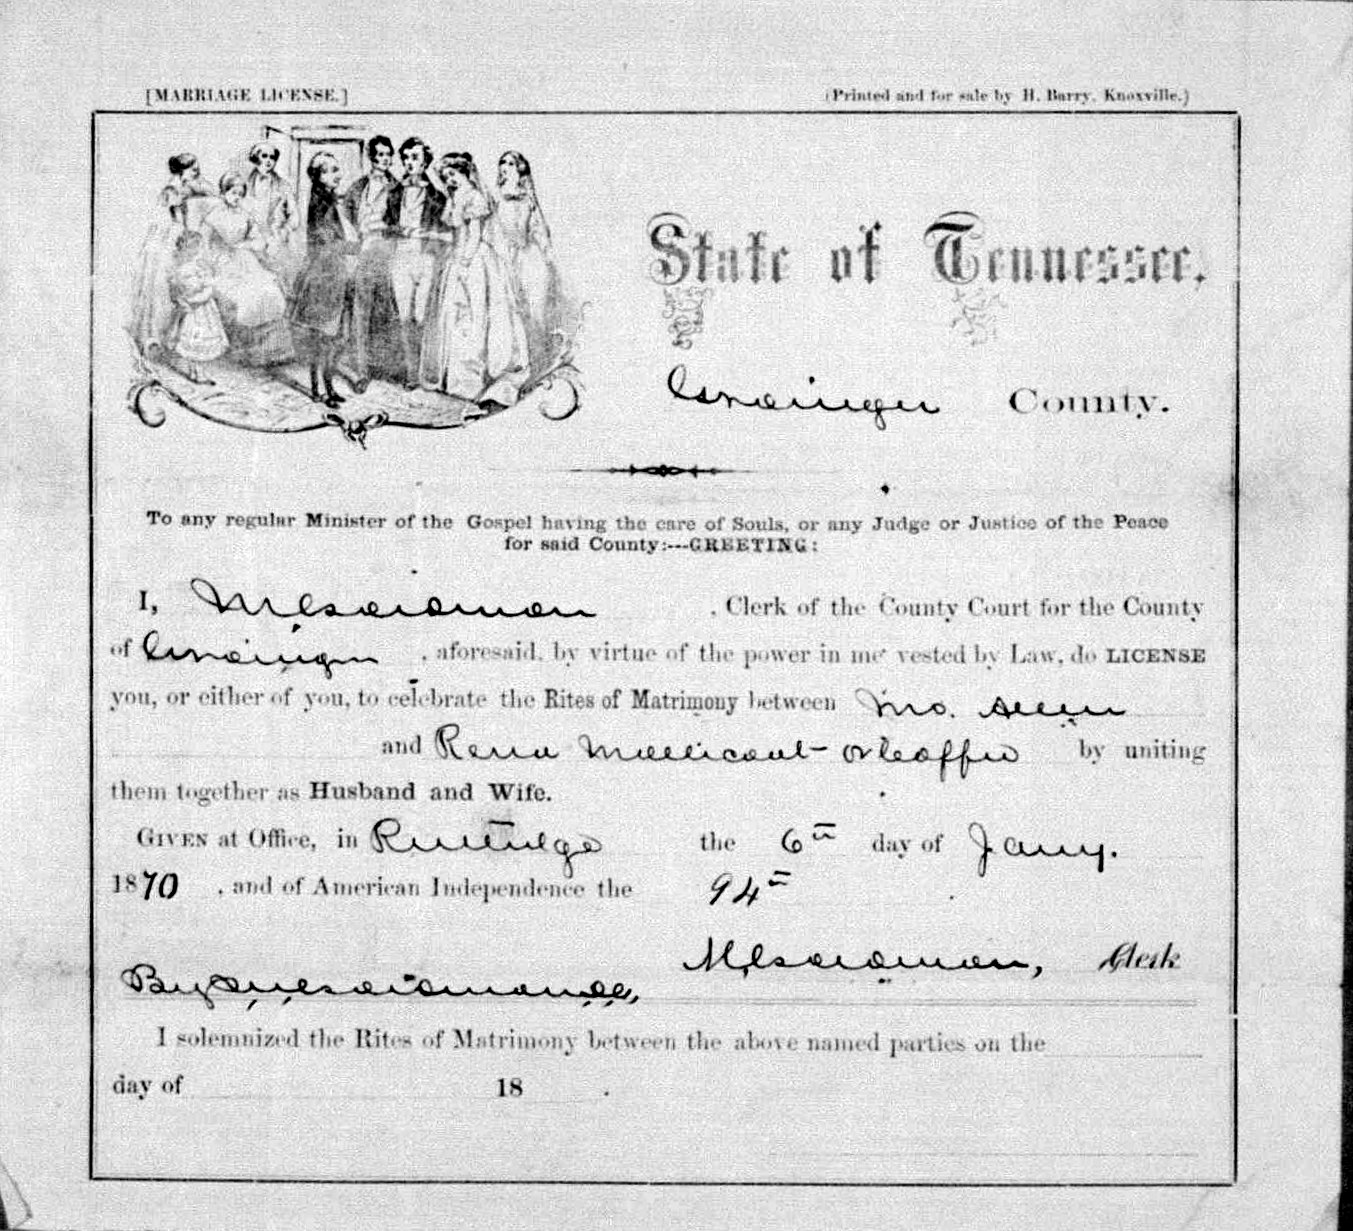 [MARRIAGE LICENSE.] (Printed and for sale by H. Barry, Knoxville.)
State of Tennessee,
Grainger County.
To any regular Minister of the Gospel having the care of Souls, or any Judge or Justice of the Peace
for said County:---GREETING:
I, , Clerk of the County Court for the County
of Grainger , aforesaid, by virtue of the power in me vested by Law, do LICENSE
you, or either of you, to celebrate the Rites of Matrimony between Jno. Allen
and Rena Mallicoat by uniting
them together as Husband and Wife.
GIVEN at Office, in Rutledge the 6th day of Jany.
1870 , and of American Independence the 94th
Clerk
By
I solemnized the Rites of Matrimony between the above named parties on the
day of 18 .